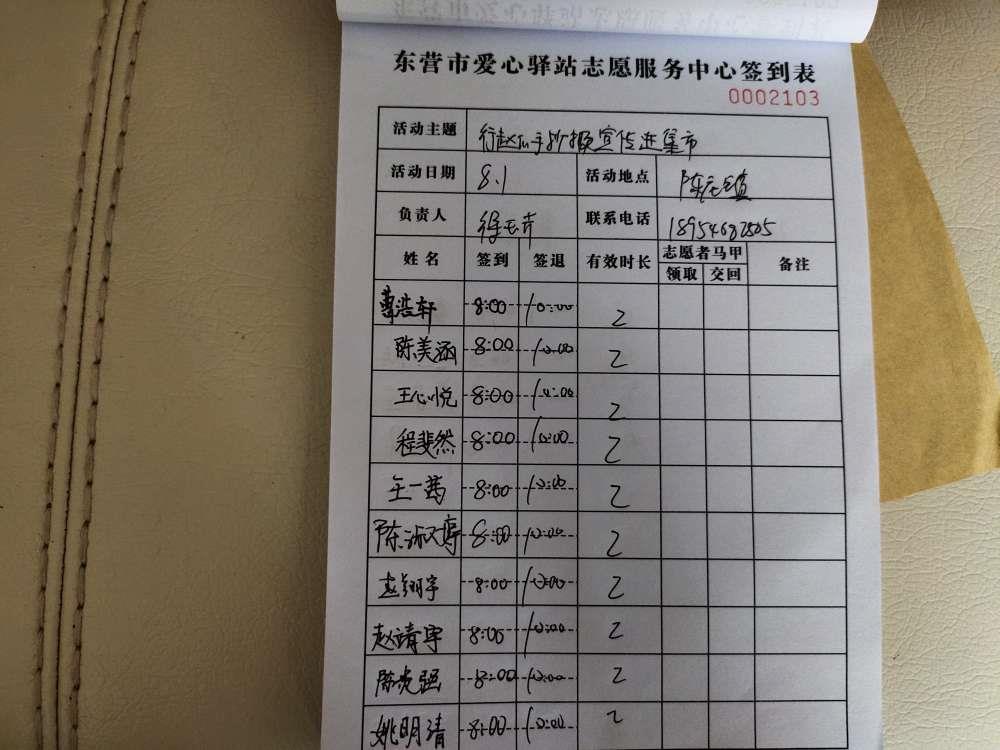 东营市爱心驿站志愿服务中心签到表
0002103
活动主题 手抄报宣传进集市
活动日期 8.1 活动地点 陈庄镇
负责人 徐玉芹 联系电话 18954682505
姓名 签到 签退 有效时长 志愿者马甲 备注
领取 交回
曹浩轩 8:00 10:00 2
陈美涵 8:00 10:00 2
王心悦 8:00 10:00 2
程斐然 8:00 10:00 2
王一茜 8:00 10:00 2
陈 8:00 10:00 2
赵翔宇 8:00 10:00 2
赵靖宇 8:00 10:00 2
陈俊强 8:00 10:00 2
姚明清 8:00 10:00 2